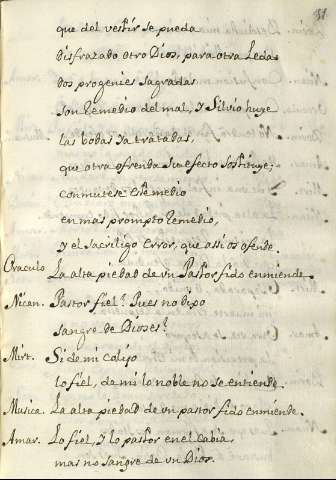 que del vestir se pueda
disfrazado otro Dios, para otra Leda:
dos progenies sagradas
son Remedio del mal, y Silvio huye
las bodas ya tratadas,
que otra ofrenda su efecto sostituye;
conmutese este medio
en mas prompto Remedio,
y el sacriligo error, que assi os ofende
Oraculo La alta piedad de vn Pastor fido enmiende.
Nican. Pastor fiel? Pues no dixo
sangre de Dioses?
Mirt. Si de mi colijo
lo fiel, de mi lo noble no se entiende.
Musica. La alta piedad de vn pastor fido enmiende.
Amar. Lo fiel, y lo pastor en el cabia,
mas no sangre de vn Dios.